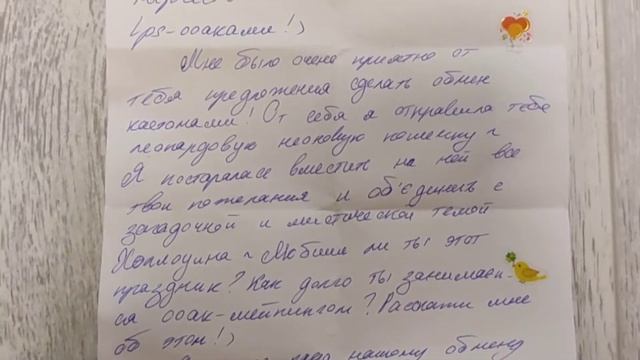 lps-ооаками!)
Мне было очень приятно от
тебя предложения сделать обмен
кастомами! От себя я отправила тебе
леопардовую неоновую кошечку ~
Я постаралась вместить на ней все
твои пожелания и об'єдинить с
загадочной и мистической темой
Хэллоуина ~ Любишь ли ты этот
праздник? Как долго ты занимаеш-
ся ооак-мейкингом? Расскажи мне
об этом!)
нашому обмену